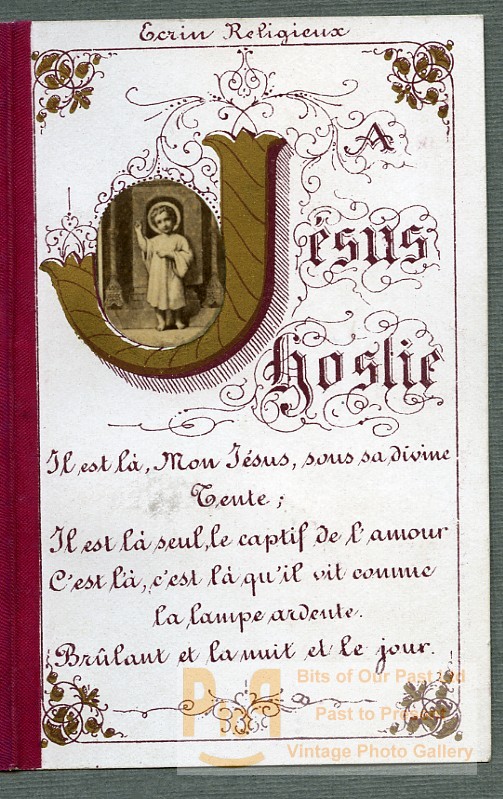 Ecrin Religieux
A
Jésus
Hostie
Il est là, Mon Jésus, sous sa divine
Tente;
Il est là seul, le captif de l'amour
C'est là, c'est là qu'il vit comme
la lampe ardente.
Brûlant et la nuit et le jour.
Bits of Our Past Ltd
Past to Present
Vintage Photo Gallery